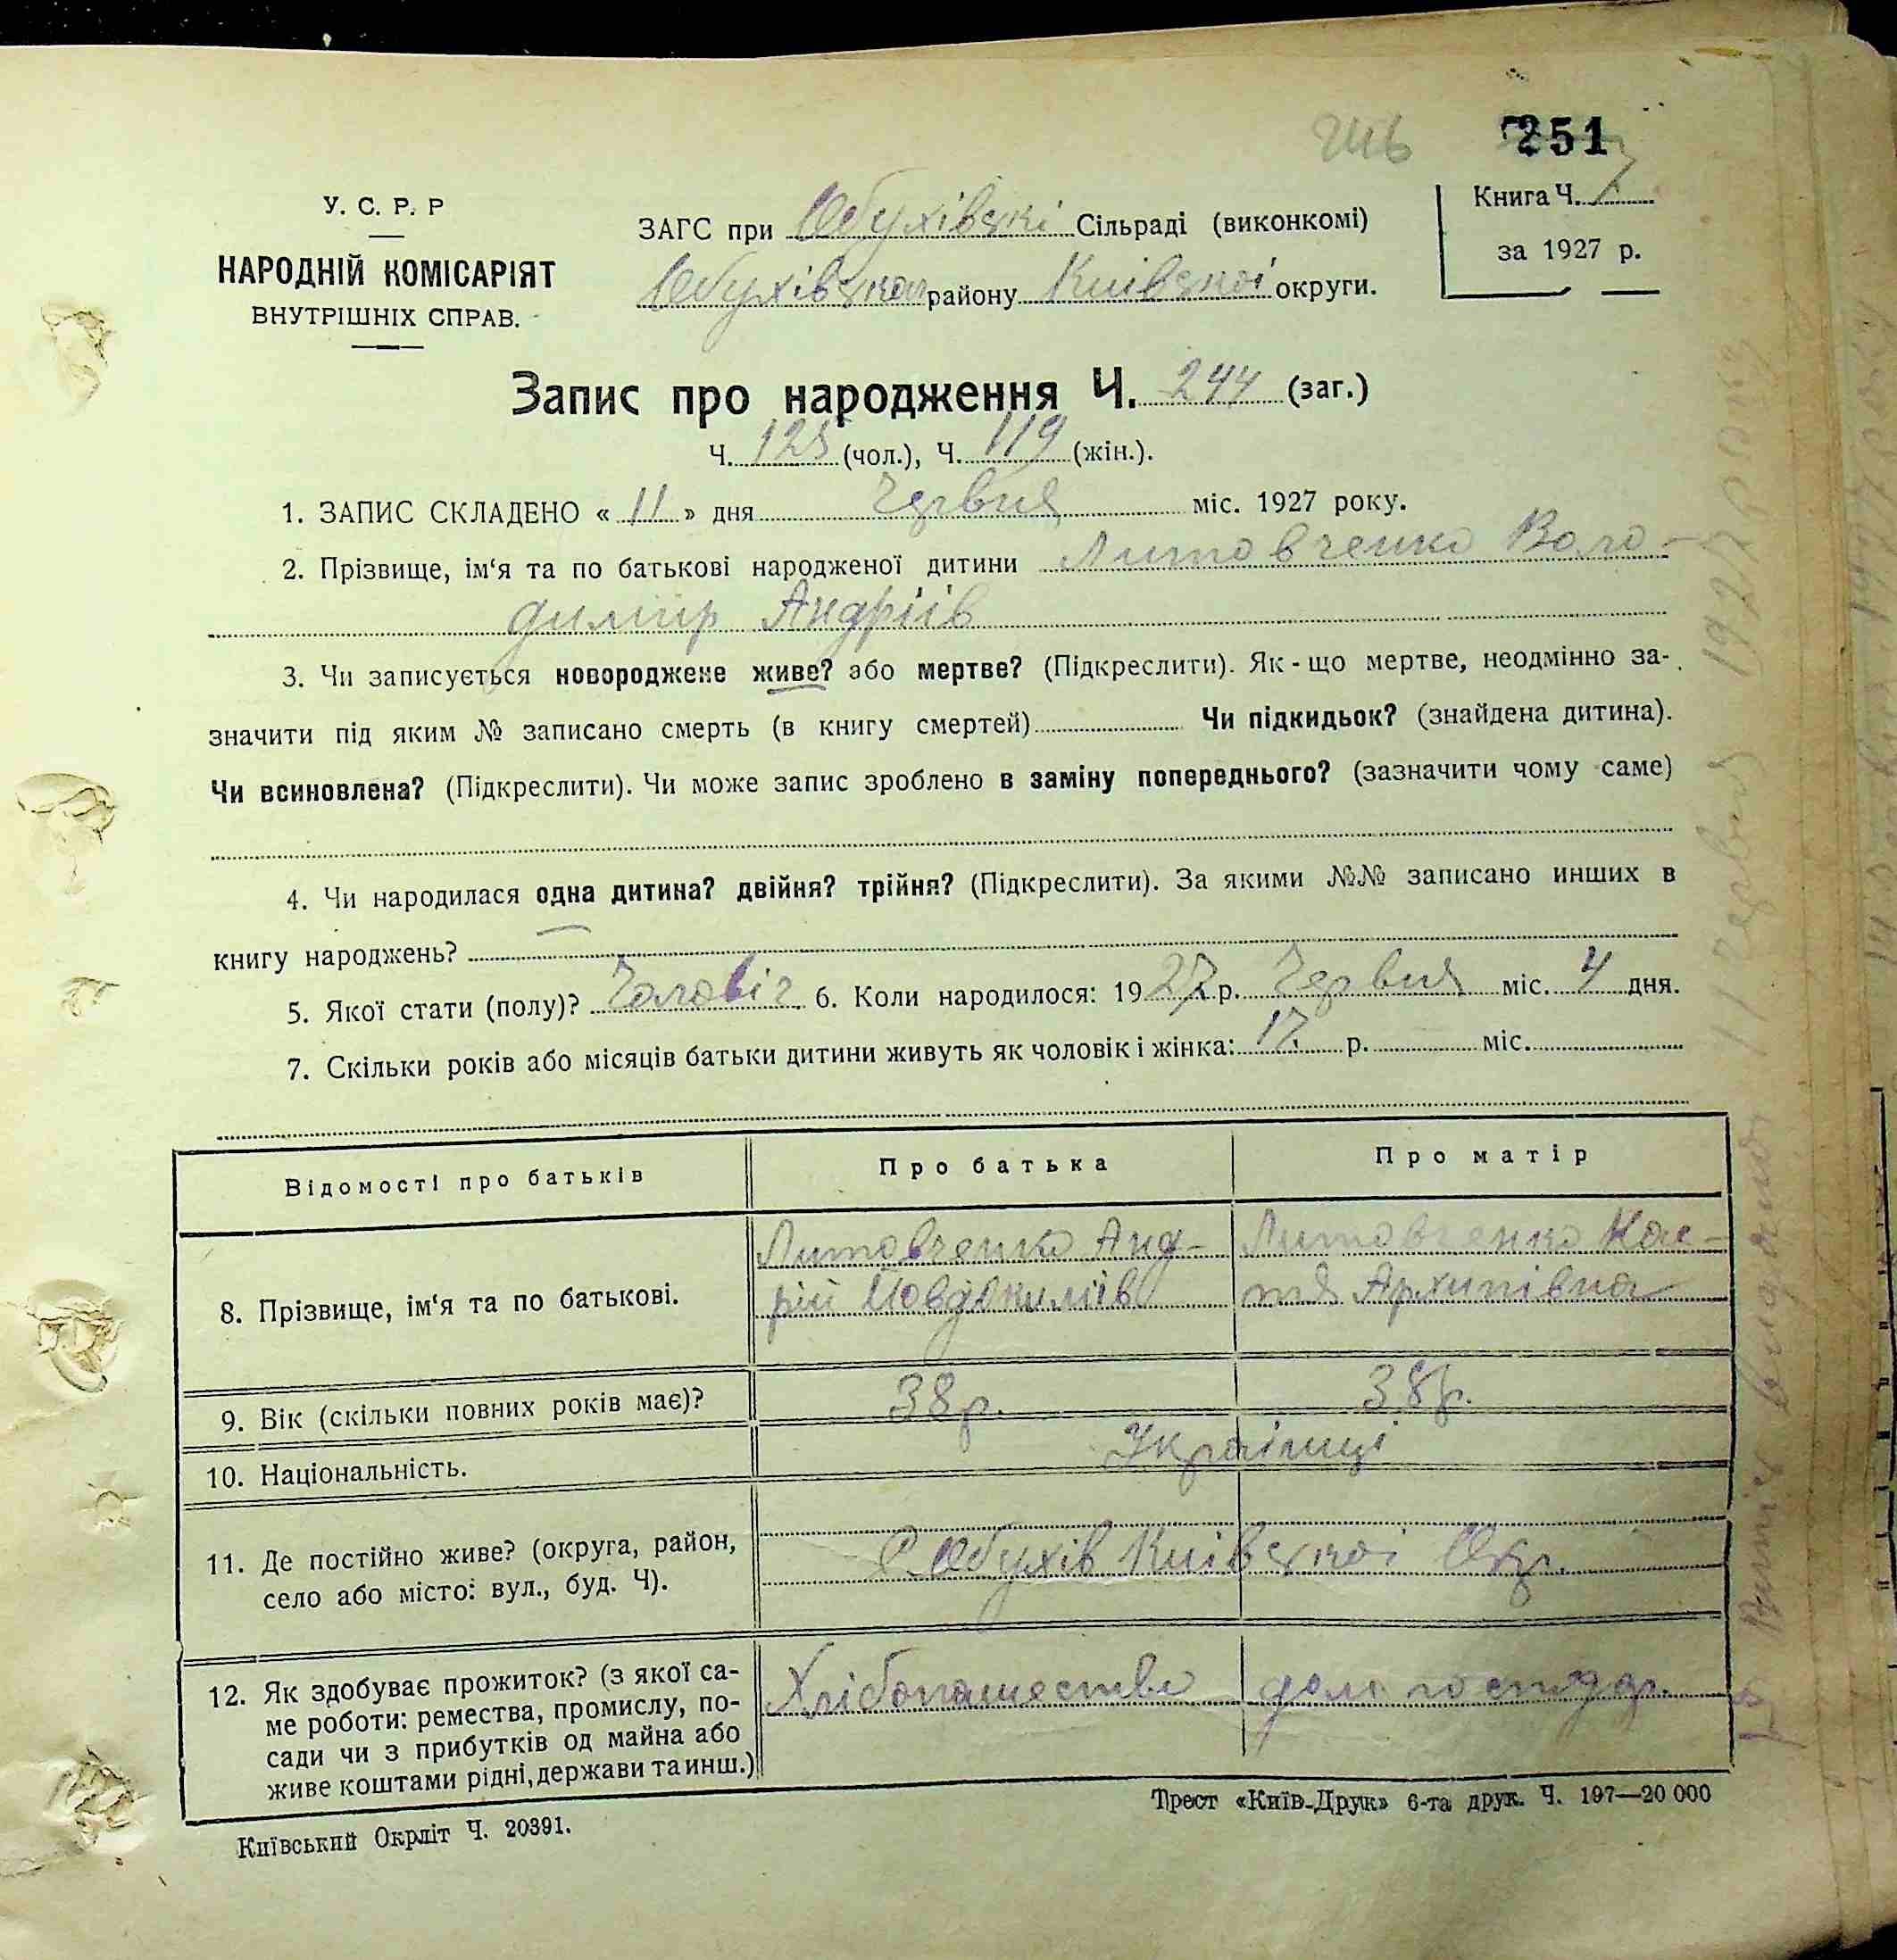 251
У. С. Р. Р
НАРОДНІЙ КОМІСАРІЯТ
ВНУТРІШНІХ СПРАВ.
ЗАГС при Обухівскі Сільраді (виконкомі)
Обухівская району Київскої округи.
Книга Ч.
за 1927 р.
Запис про народження Ч. 244 (заг.)
Ч. 125 (чол.), Ч. 119 (жін.).
1. ЗАПИС СКЛАДЕНО « 11 » дня Червня міс. 1927 року.
2. Прізвище, ім‘я та по батькові народженої дитини Литовченко Воло-
димір Андріів
3. Чи записується новороджене живе? або мертве? (Підкреслити). Як-що мертве, неодмінно за-
значити під яким № записано смерть (в книгу смертей) Чи підкидьок? (знайдена дитина).
Чи всиновлена? (Підкреслити). Чи може запис зроблено в заміну попереднього? (зазначити чому саме)
4. Чи народилася одна дитина? двійня? трійня? (Підкреслити). За якими №№ записано инших в
книгу народжень?
5. Якої стати (полу)? Чоловіч. 6. Коли народилося: 1927 р. Червня міс. 4 дня.
7. Скільки років або місяців батьки дитини живуть як чоловік і жінка: 17 р. міс.
Відомості про батьків Про батька Про матір
8. Прізвище, ім‘я та по батькові. Литовченко Анд-
рій Йовдокимів Литовченко Нас-
тя Архипівна
9. Вік (скільки повних років має)? 38 р. 38 р.
10. Національність. Українці
11. Де постійно живе? (округа, район,
село або місто: вул., буд. Ч). С. Обухів Київскої Окр.
12. Як здобуває прожиток? (з якої са-
ме роботи: ремества, промислу, по-
сади чи з прибутків од майна або
живе коштами рідні, держави та инш.) Хлібопашество дом. господар.
Київський Окрліт Ч. 20391.
Трест «Київ-Друк» 6-та друк. Ч. 197—20 000